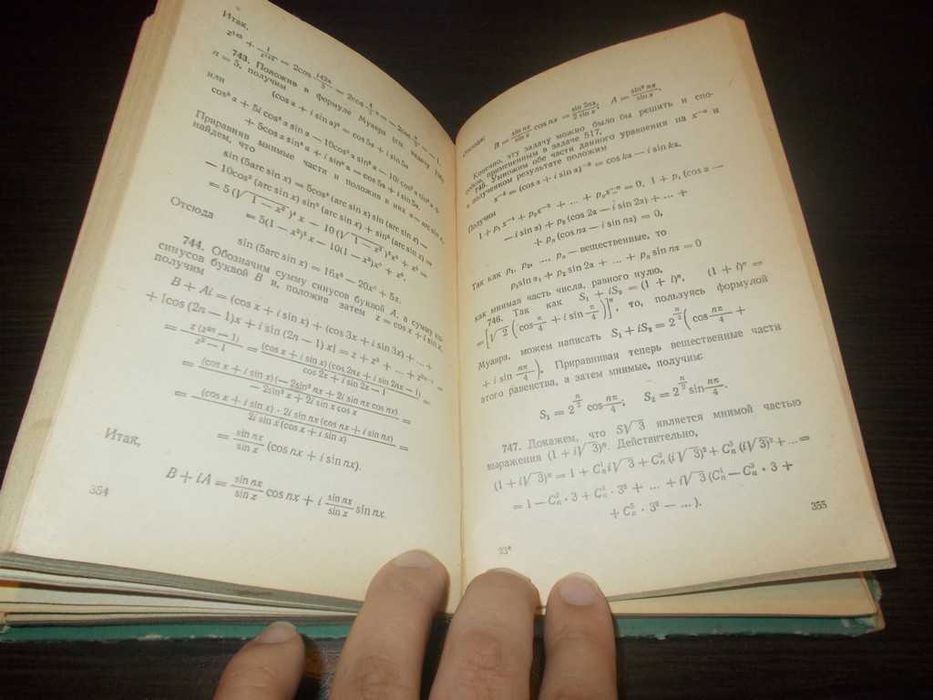 Итак,
743. Положив в формуле Муавра (см. задачу
n = 5, получим
(cos α + i sin α)⁵ = cos 5α + i sin 5α,
или
cos⁵ α + 5i cos⁴ α sin α — 10cos³ α sin² α — 10i cos² α sin³ α +
+ 5cos α sin⁴ α + i sin⁵ α = cos 5α + i sin 5α.
Приравняв мнимые части и положив в них α = arc sin x,
найдем, что
sin (5arc sin x) = 5cos⁴ (arc sin x) sin (arc sin x) —
— 10cos² (arc sin x) sin³ (arc sin x) + sin⁵ (arc sin x) =
= 5 (√1 — x²)⁴ x — 10 (√1 — x²)² x³ + x⁵ =
= 5(1 — x²)² x — 10(1 — x²)x³ + x⁵.
Отсюда
sin (5arc sin x) = 16x⁵ — 20x³ + 5x.
744. Обозначим сумму синусов буквой A, а сумму ко-
синусов буквой B и, положив затем z = cos x + i sin x,
получим
B + Ai = (cos x + i sin x) + (cos 3x + i sin 3x) + ... +
+ [cos (2n — 1)x + i sin (2n — 1)x] = z + z³ + ... + z²ⁿ⁻¹ =
= z (z²ⁿ — 1) / z² — 1 = (cos x + i sin x) (cos 2nx + i sin 2nx — 1) / cos 2x + i sin 2x — 1 =
= (cos x + i sin x) (— 2sin² nx + 2i sin nx cos nx) / —2sin² x + 2i sin x cos x =
= (cos x + i sin x) · 2i sin nx (cos nx + i sin nx) / 2i sin x (cos x + i sin x) =
= sin nx / sin x (cos nx + i sin nx).
Итак,
B + iA = sin nx / sin x cos nx + i sin nx / sin x sin nx.
354
B = sin nx / sin x cos nx = sin 2nx / 2 sin x, A = sin² nx / sin x.
Конечно, эту задачу можно было бы решить и спо-
собом, примененным в задаче 517.
745. Умножим обе части данного уравнения на x⁻ⁿ и
в полученном результате положим
x⁻ᵏ = (cos α + i sin α)⁻ᵏ = cos kα — i sin kα.
Получим
1 + p₁x⁻¹ + p₂x⁻² + ... + pₙx⁻ⁿ = 0, 1 + p₁ (cos α —
— i sin α) + p₂ (cos 2α — i sin 2α) + ... +
+ pₙ (cos nα — i sin nα) = 0,
Так как p₁, p₂, ..., pₙ — вещественные, то
p₁sin α + p₂ sin 2α + ... + pₙ sin nα = 0
как мнимая часть числа, равного нулю.
746. Так как S₁ + iS₂ = (1 + i)ⁿ, (1 + i)ⁿ =
= [√2 (cos π/4 + i sin π/4)]ⁿ, то, пользуясь формулой
Муавра, можем написать S₁ + iS₂ = 2^(n/2) (cos nπ/4 +
+ i sin nπ/4). Приравнивая теперь вещественные части
этого равенства, а затем мнимые, получим:
S₁ = 2^(n/2) cos nπ/4; S₂ = 2^(n/2) sin nπ/4.
747. Докажем, что S√3 является мнимой частью
выражения (1 + i√3)ⁿ. Действительно,
(1 + i√3)ⁿ = 1 + C¹ₙi√3 + C²ₙ (i√3)² + C³ₙ (i√3)³ + ... =
= 1 — C²ₙ · 3 + C⁴ₙ · 3² + ... + i√3 (C¹ₙ — C³ₙ · 3 +
+ C⁵ₙ · 3² — ...).
23*
355